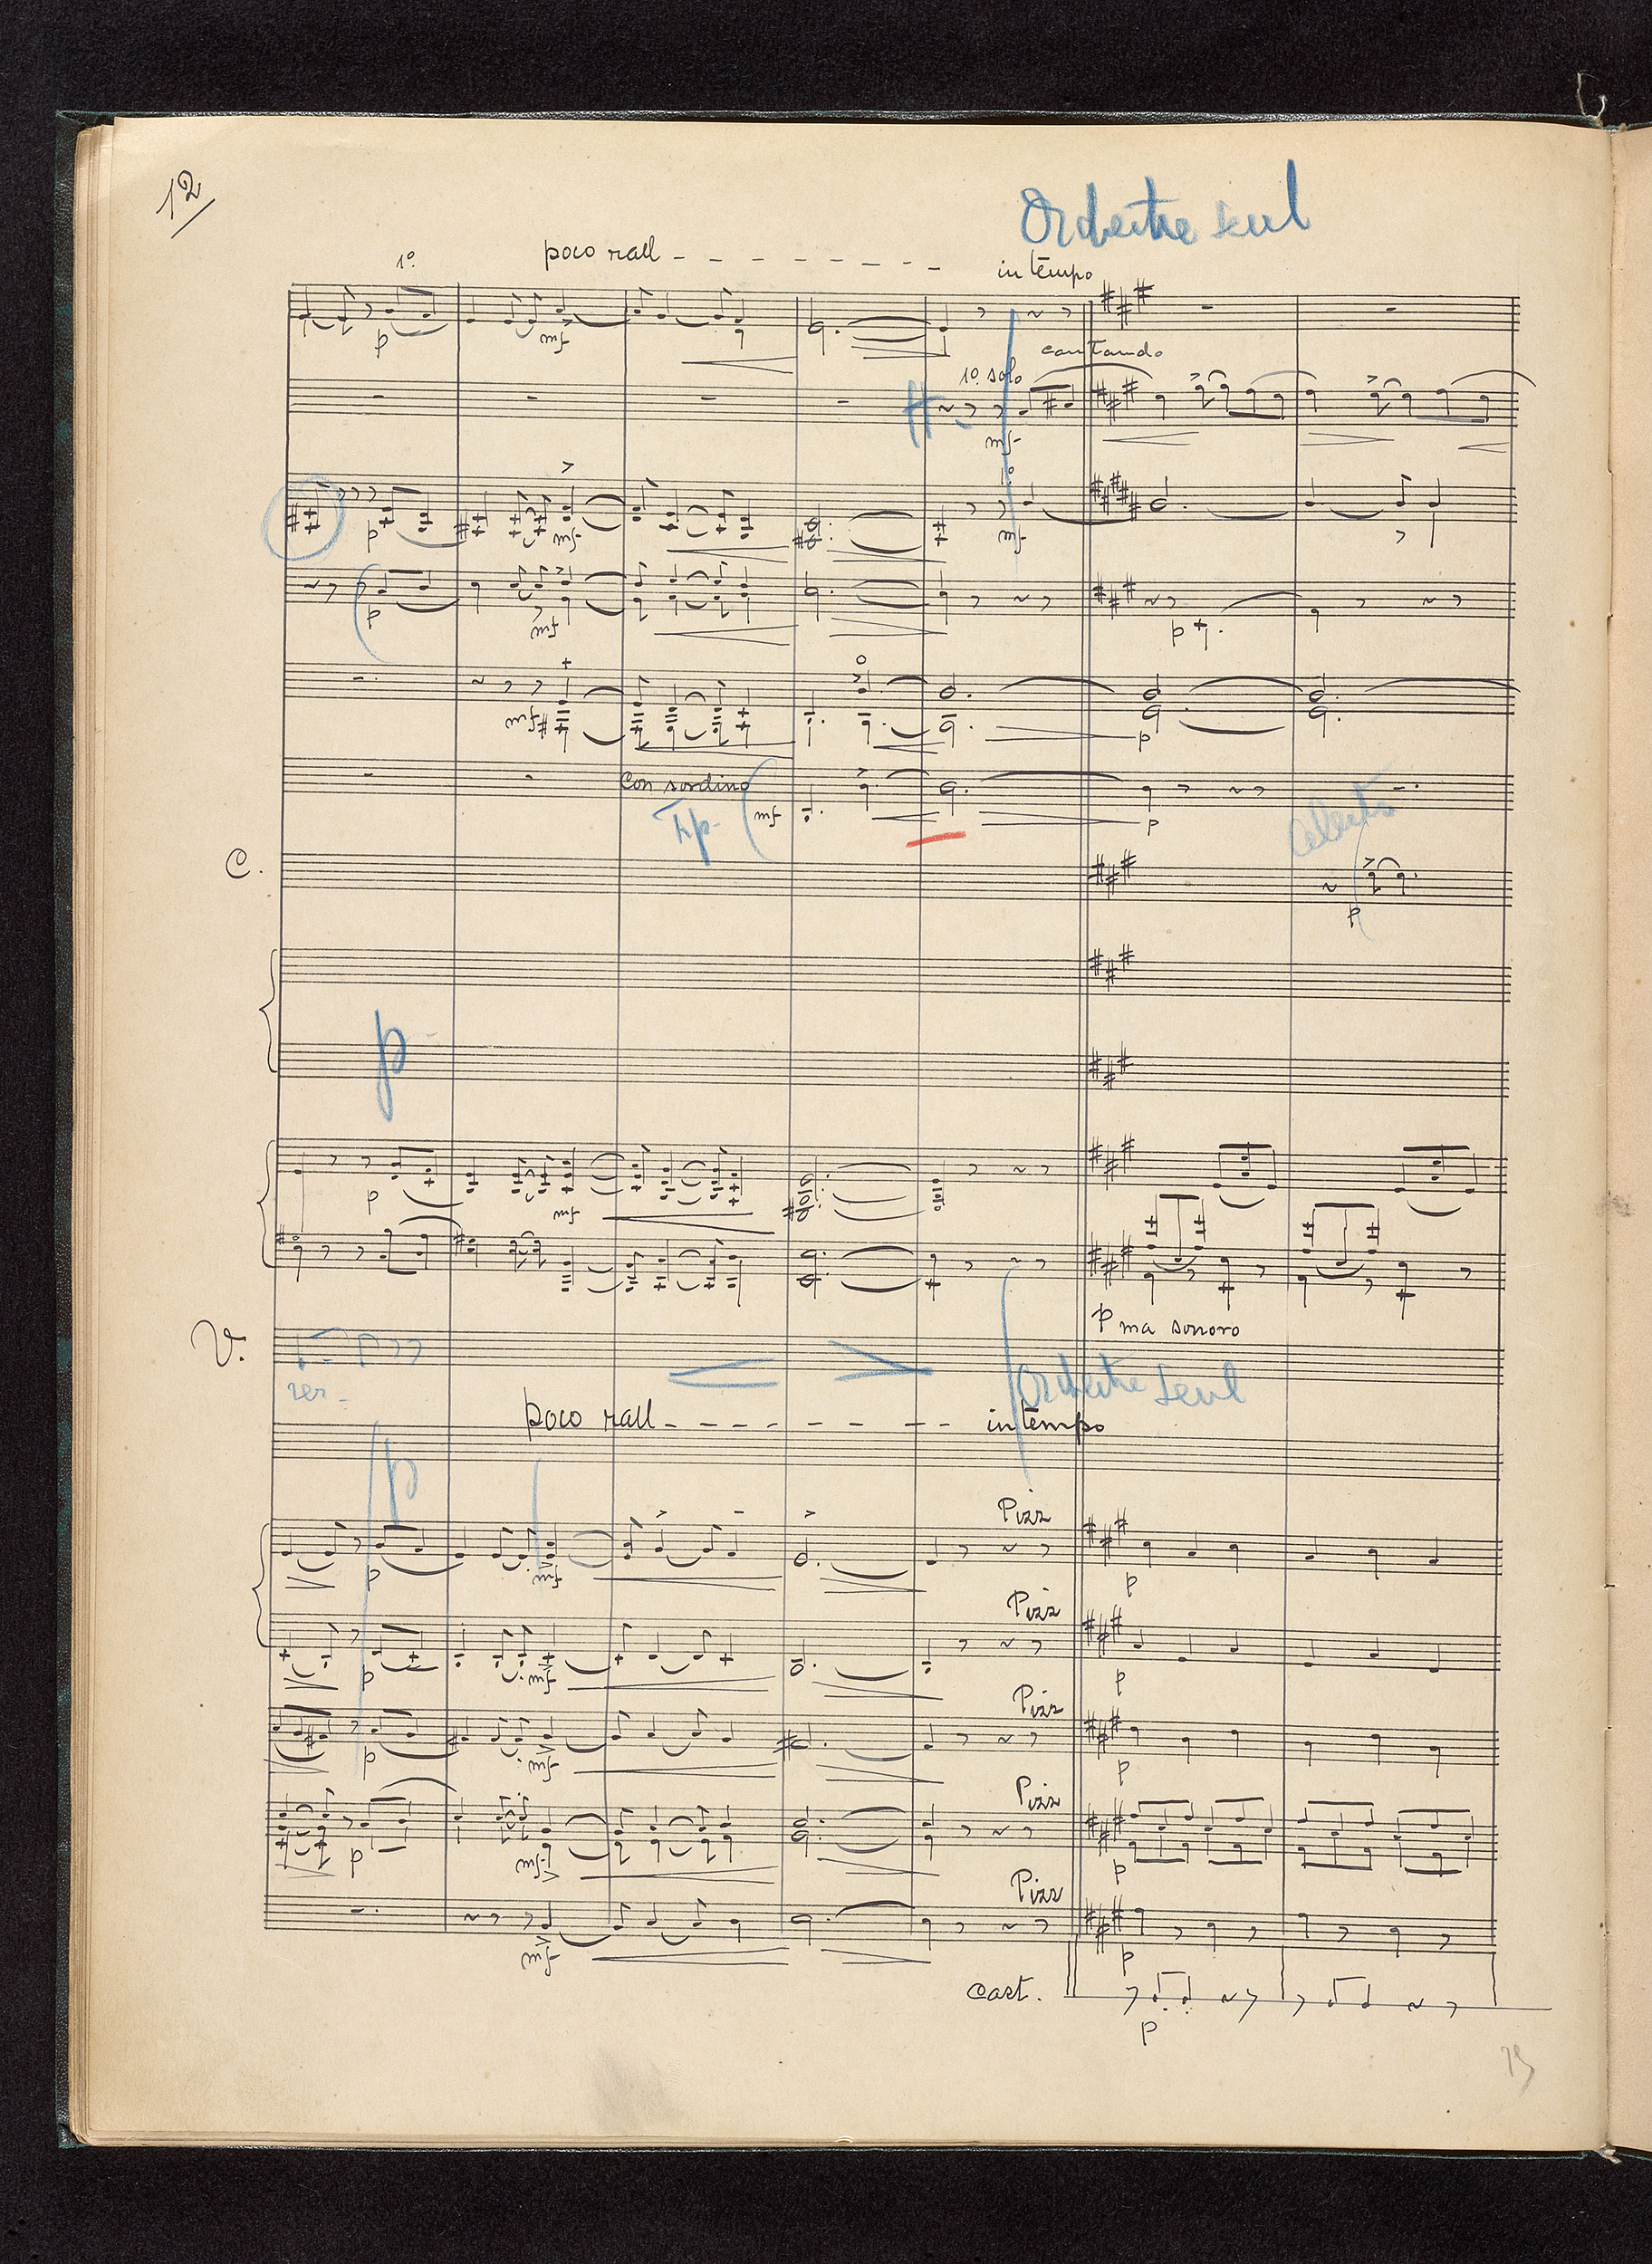 12
Orchestre seul
1º.
poco rall
in tempo
cantando
1º. solo
p
mf
H-
mf
1º
p
mf
mf
p
mf
p
mf
p
Con sordino
Tp-
mf
p
C.
Celesta
p
p
p
mf
p ma sonoro
V.
Orchestre seul
poco rall
in tempo
p
Pizz
p
mf
p
Pizz
p
mf
p
Pizz
p
mf
p
Pizz
p
mf
p
Pizz
mf
p
cast.
p